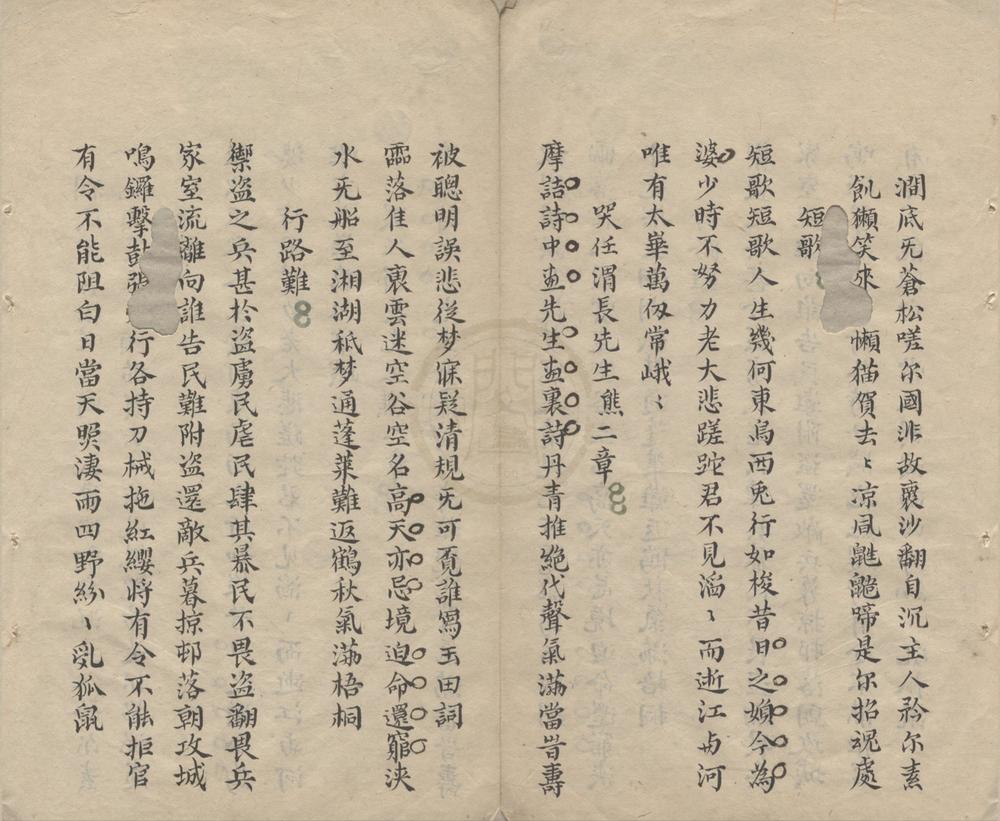 澗底无蒼松嗟尔國非故裏沙翻自沉主人矜尔素
飢獺笑來懶猫賀去〻凉風鼪鼯啼是尔招魂處
短歌
短歌短歌人生幾何東烏西兎行如梭昔日之娘今為
婆少時不努力老大悲蹉跎君不見滔〻而逝江与河
唯有太華萬仭常峨〻
哭任渭長先生熊二章
摩詰詩中畫先生畫裏詩丹青推絕代聲氣滿當旹壽
被聰明誤悲從梦寐疑清規旡可覓誰寫玉田詞
霝落佳人裏雲迷空谷空名高天亦忌境迫命還窮浹
水旡船至湘湖秖梦通蓬萊難返鶴秋氣滿梧桐
行路難
禦盗之兵甚於盗虜民虐民肆其暴民不畏盗翻畏兵
家室流離向誰告民難附盗還敵兵暮掠邨落朝攻城
鳴鑼擊鼓張行各持刀械拖紅纓將有令不能拒官
有令不能阻白日當天㬌淒雨四野紛〻乳狐鼠